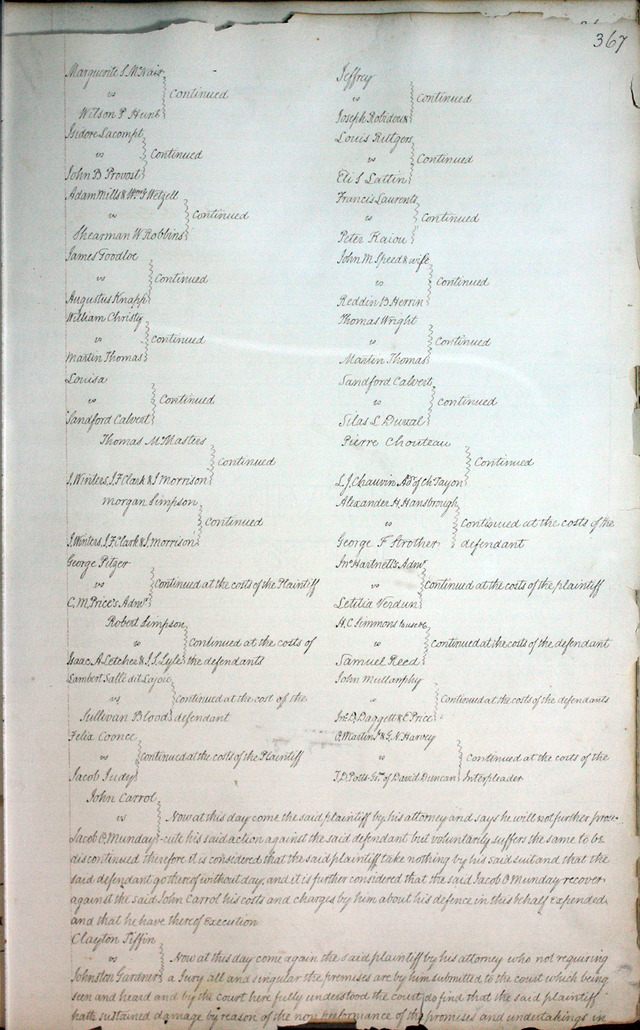 367
Marguerite S. McNair
vs
Continued
Wilson P Hunt
Isidore Lacompt
vs
Continued
John B Provost
Adam Mills & Wm G Wetzell
vs
Continued
Shearman W Robbins
James Goodloe
vs
Continued
Augustus Knapp
William Christy
vs
Continued
Martin Thomas
Louisa
vs
Continued
Sandford Calvert
Thomas McMasters
Continued
S. Winters, S. F. Clark & S Morrison
Morgan Simpson
Continued
S. Winters, S. F. Clark & S. Morrison
George Pitzer
vs
Continued at the costs of the Plaintiff
C. M. Price's Admr.
Robert Simpson
vs
Continued at the costs of
Isaac A. Letcher & S. S. Lyle the defendants
Lambert Sallé dit Lajoie
vs
Continued at the cost of the
Sullivan Blood defendant
Felix Coonce
vs
Continued at the costs of the Plaintiff
Jacob Judy
Jeffrey
vs
Continued
Joseph Robidoux
Louis Rettgers
vs
Continued
Eli S Lattin
Francis Laurent
vs
Continued
Peter Raiou
John M. Speed & wife
vs
Continued
Reddin B Herrin
Thomas Wright
vs
Continued
Martin Thomas
Sandford Calvert
vs
Continued
Silas L Duval
Pierre Chouteau
Continued
L. J. Chauvin Adr. of Ch Tayon
Alexander H. Hansbrough
vs
Continued at the costs of the
George F Strother defendant
Jno Hartnett's Admr.
vs
Continued at the costs of the plaintiff
Letitia Verdun
H. C. Simmons to use &c
vs
Continued at the costs of the defendant
Samuel Reed
John Mullanphy
vs
Continued at the costs of the defendants
Jno D. Daggett & E Price
O Martin & G. N. Harvey
vs
Continued at the costs of the
T. D. Potts Gr. of David Duncan Interpleader
John Carrol
vs
Now at this day come the said plaintiff by his attorney and says he will not further prose-
Jacob O Munday -cute his said action against the said defendant but voluntarly suffers the same to be
discontinued therefore it is considered that the said plaintiff take nothing by his said suit and that the
said defendant go thereof without day, and it is further considered that the said Jacob O Munday recover
against the said John Carrol his costs and charges by him about his defence in this behalf expended,
and that he have thereof Execution
Clayton Tiffin
vs
Now at this day come again the said plaintiff by his attorney who not requiring
Johnston Gardner a Jury all and singular the premises are by him submitted to the court which being
seen and heard and by the court here fully understood the court do find that the said plaintiff
hath sustained damage by reason of the non performance of the promises and undertakings in